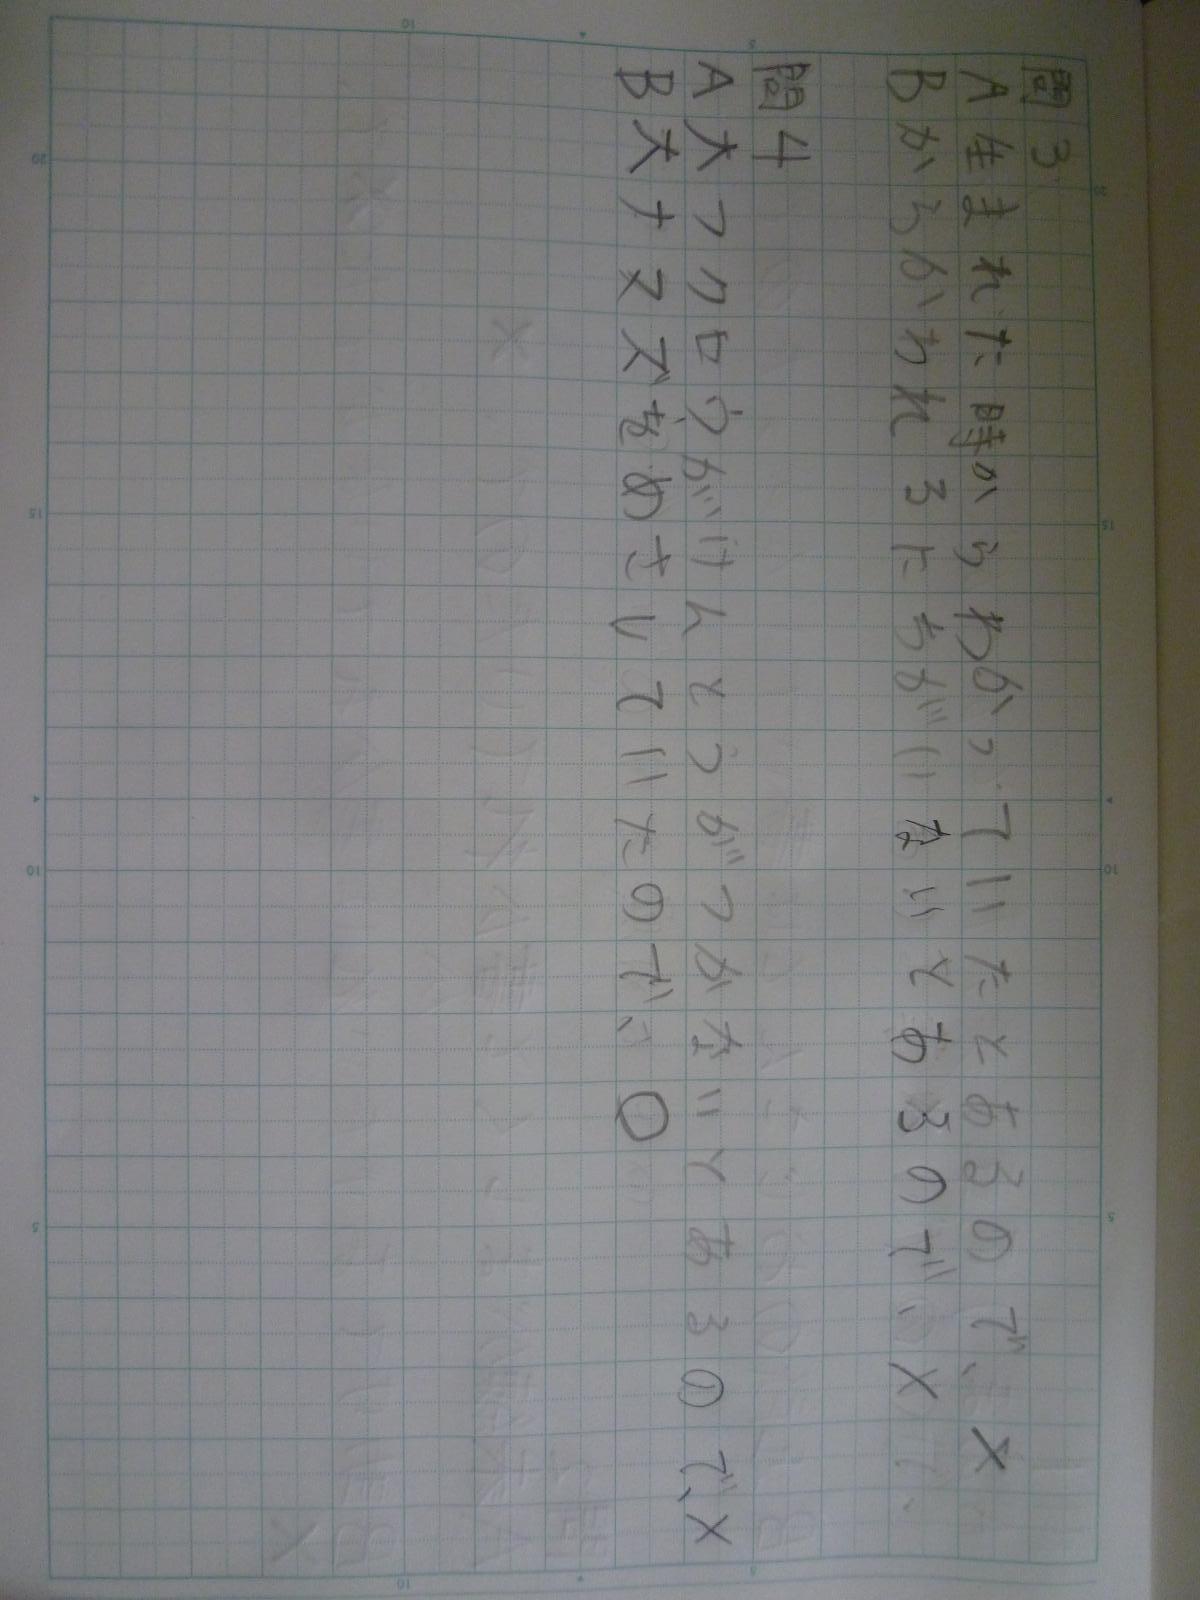 問3
A生まれた時からわかっていたとあるので、X
Bからかわれるたちがいないとあるので、X
問4
A大フクロウがけんとうがつかないとあるので、X
B大ナマズをめさしていたので、○